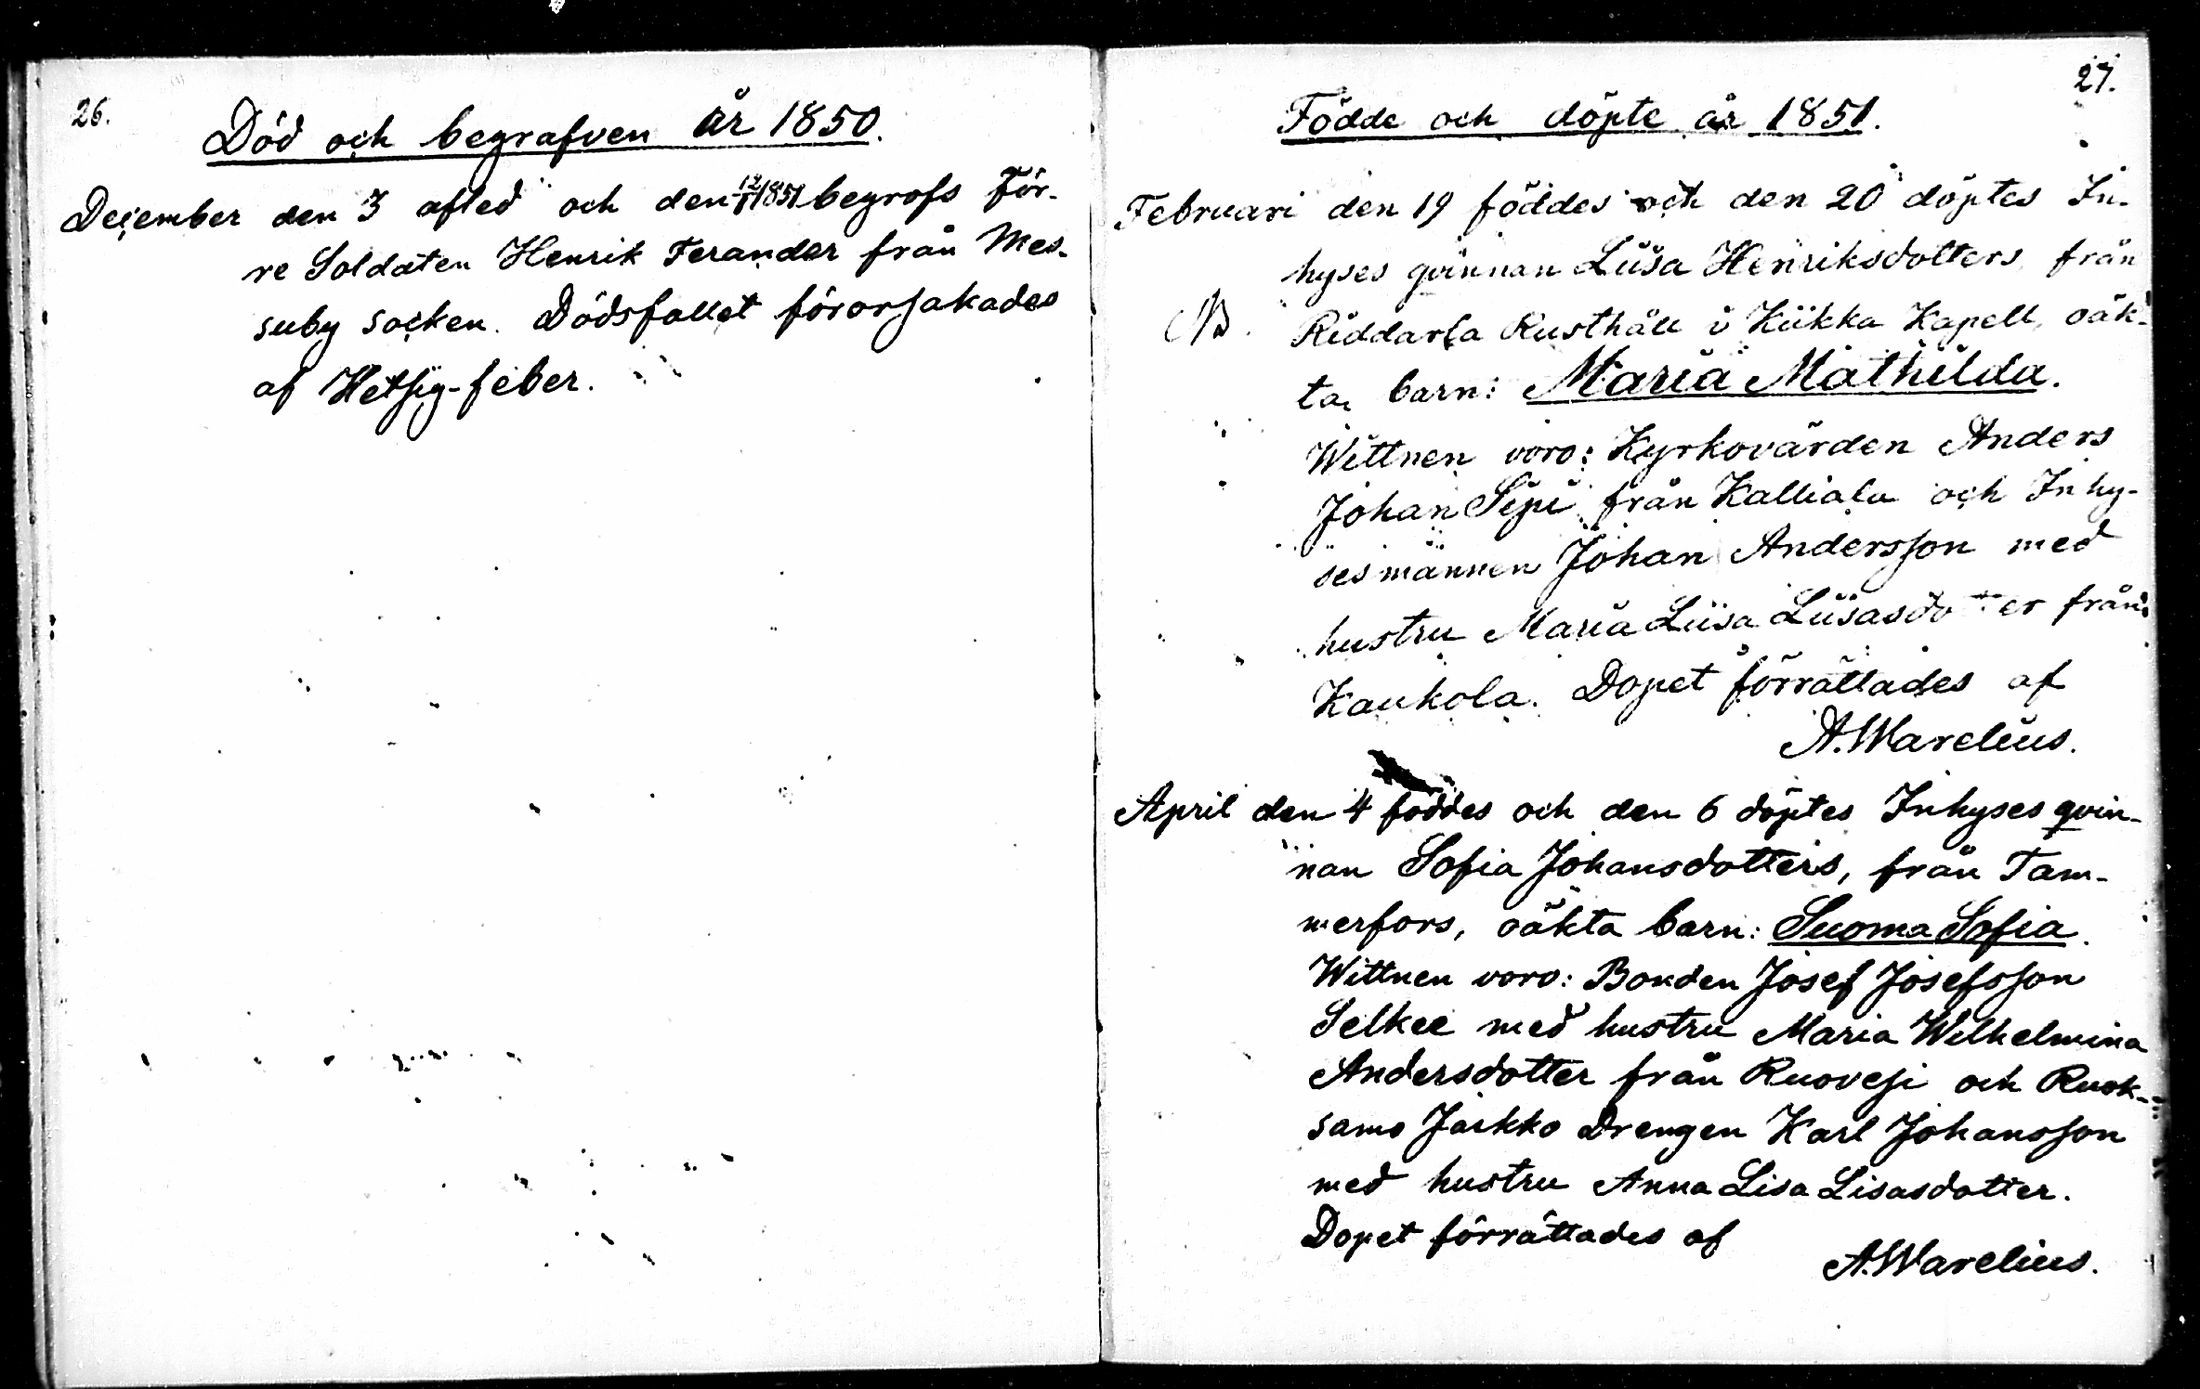 26.
Död och begrafven år 1850.
December den 3 afled och den 12/1 1851 begrofs För-
re Soldaten Henrik Ferander från Mes-
suby socken. Dödsfallet förorsakades
af Hetsig-feber.
27.
Födde och döpte år 1851.
Februari den 19 föddes och den 20 döptes In-
hyses qvinnan Liisa Henriksdotters från
NB. Riddarla Rusthåll i Kiikka Kapell, oäk-
ta barn: Maria Mathilda.
Wittnen voro: Kyrkovärden Anders
Johan Sipi från Kalliala och Inhy-
ses männen Johan Andersson med
hustru Maria Liisa Liisasdotter från
Kaukola. Dopet förrättades af
A. Warelius.
April den 4 föddes och den 6 döptes Inhyses qvin-
nan Sofia Johansdotters, från Tam-
merfors, oäkta barn: Suoma Sofia.
Wittnen voro: Bonden Josef Josefsson
Selkee med hustru Maria Wilhelmina
Andersdotter från Ruovesi och Ruok-
samo Jaakko Drengen Karl Johansson
med hustru Anna Lisa Lisasdotter.
Dopet förrättades af
A. Warelius.